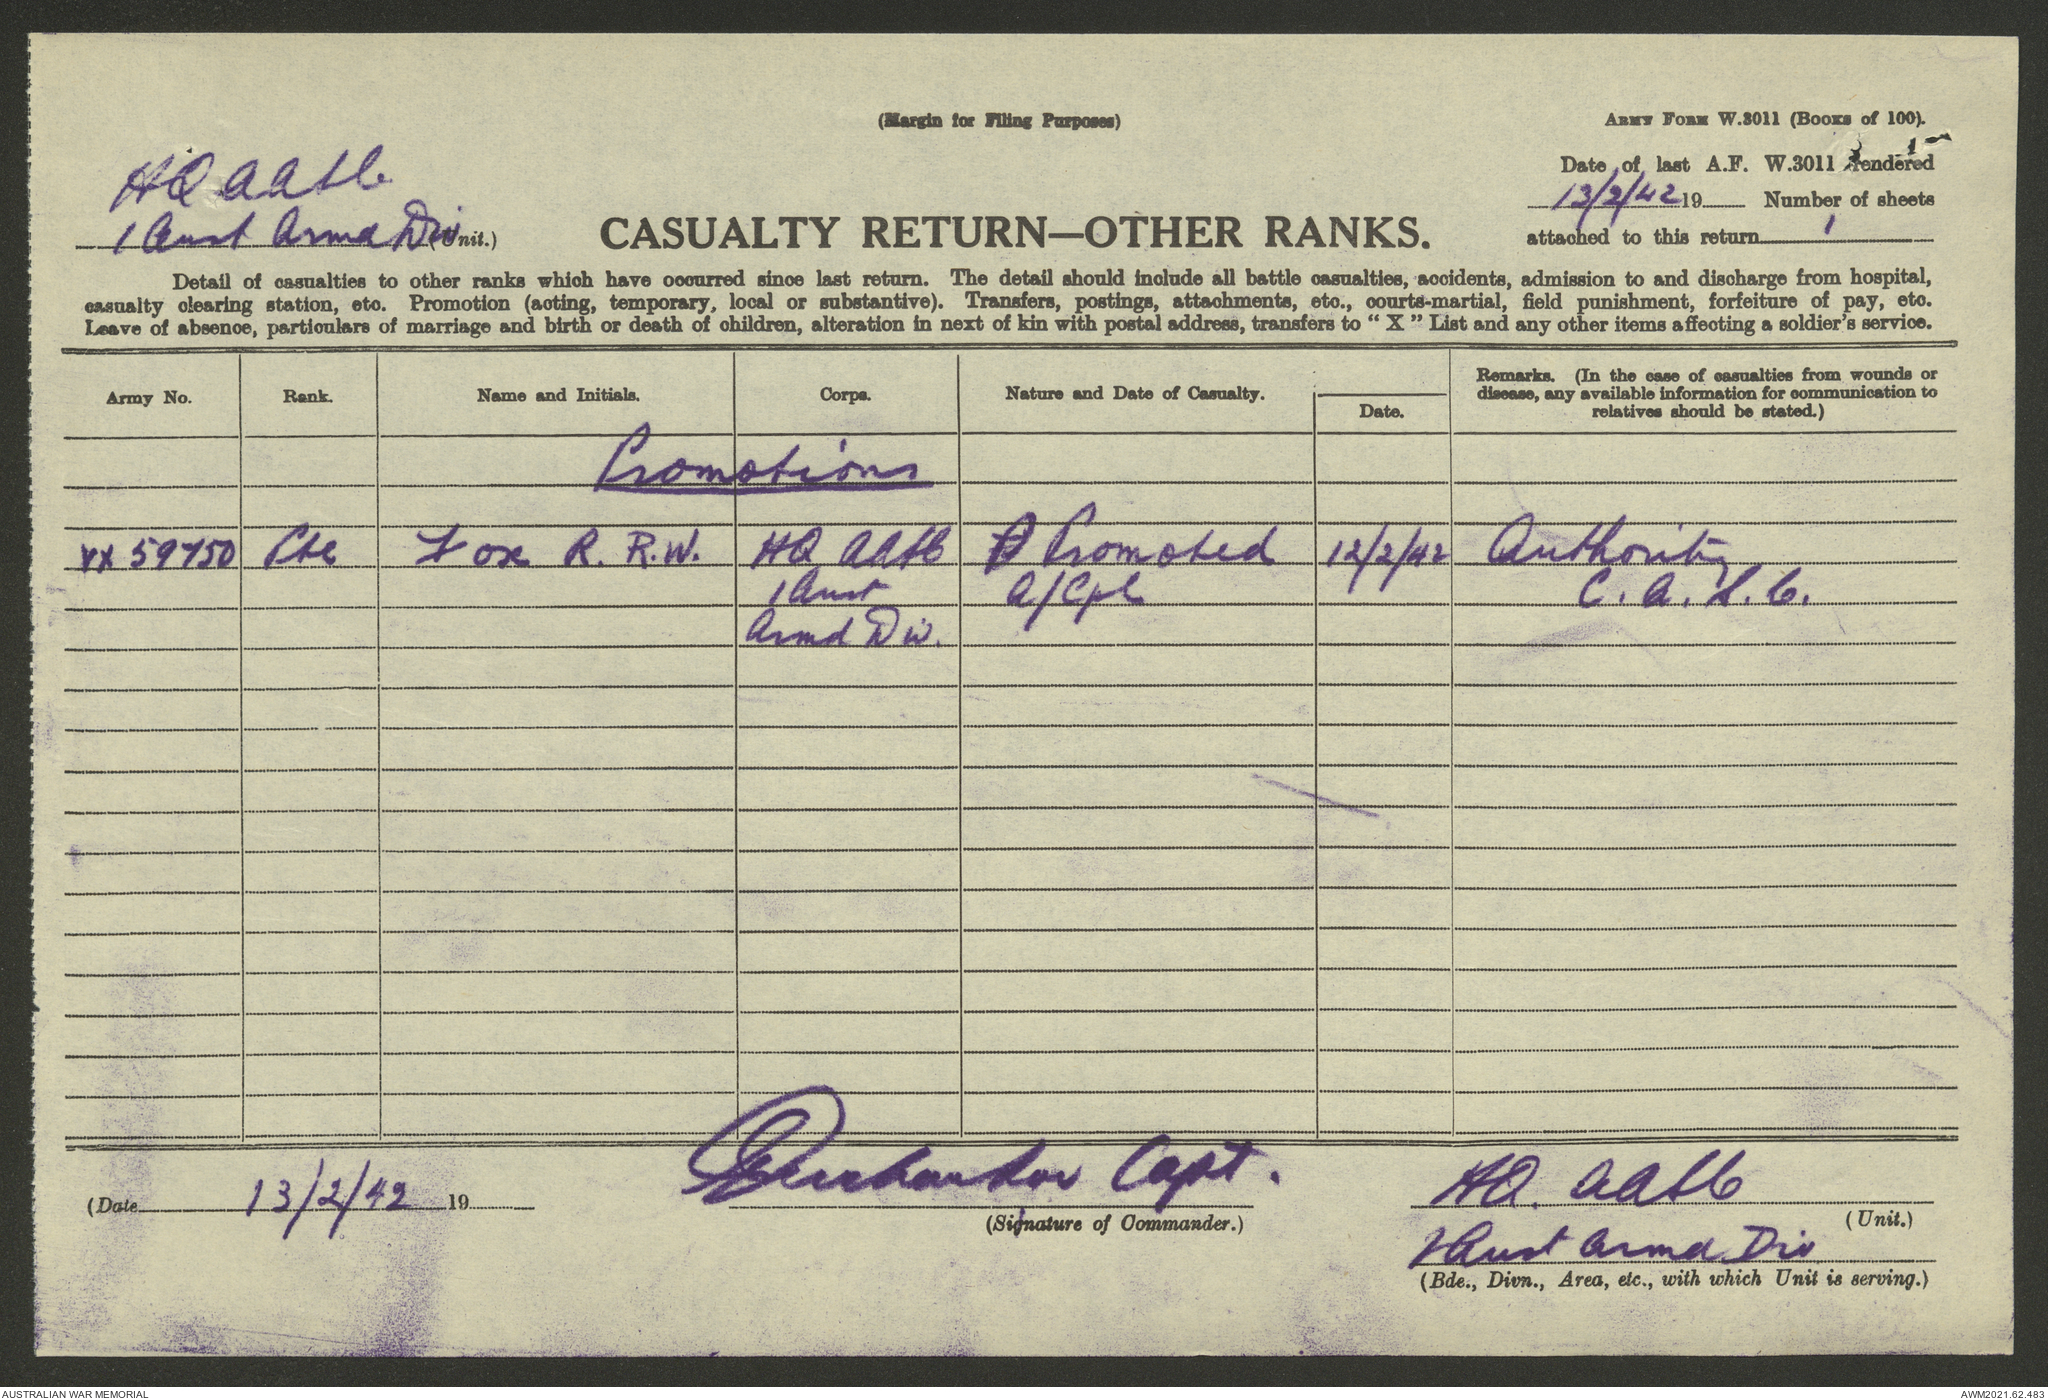 (Margin for Filing Purposes)
ARMY FORM W.3011 (Books of 100).
HQ AASC
1 Aust Armd Div
nit.)
CASUALTY RETURN—OTHER RANKS.
Date of last A.F. W.3011 rendered
13/2/42 19 Number of sheets
attached to this return 1
Detail of casualties to other ranks which have occurred since last return. The detail should include all battle casualties, accidents, admission to and discharge from hospital,
casualty clearing station, etc. Promotion (acting, temporary, local or substantive). Transfers, postings, attachments, etc., courts-martial, field punishment, forfeiture of pay, etc.
Leave of absence, particulars of marriage and birth or death of children, alteration in next of kin with postal address, transfers to “ X ” List and any other items affecting a soldier's service.
Army No. Rank. Name and Initials. Corps. Nature and Date of Casualty. Date. Remarks. (In the case of casualties from wounds or
disease, any available information for communication to
relatives should be stated.)
Promotions
VX 59750 Pte Fox R. R.W. HQ AASC Promoted 12/2/42 Authority
1 Aust A/Cpl C. A. S. C.
Armd Div.
(Date 13/2/42 19
Capt.
(Signature of Commander.)
HQ. AASC
(Unit.)
1 Aust Armd Div
(Bde., Divn., Area, etc., with which Unit is serving.)
AUSTRALIAN WAR MEMORIAL
AWM2021.62.483